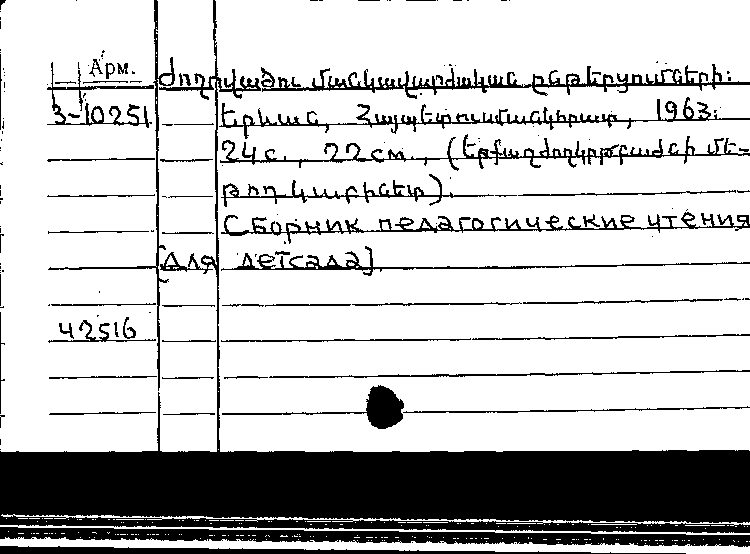 Арм.
Ժողովածու մանկավարժական ընթերցումների:
3-10251
Երևան, Հայպետուսմանկհրատ, 1963:
24 с., 22 см., (Երքաղժողկրթբաժնի մե-
թոդ կաբինետ).
Сборник педагогические чтения
[для детсада]
42516